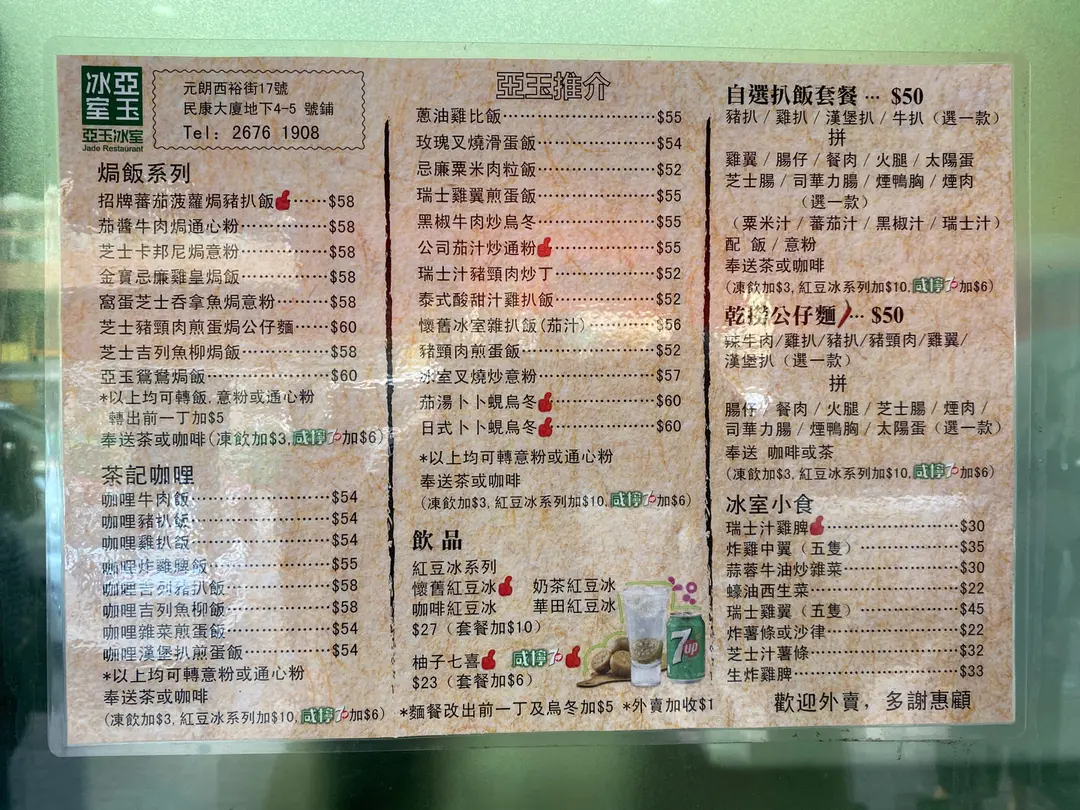 冰室
亞玉
亞玉冰室
Jade Restaurant
元朗西裕街17號
民康大廈地下4-5 號鋪
Tel: 2676 1908
焗飯系列
招牌蕃茄菠蘿焗豬扒飯……$58
茄醬牛肉焗通心粉……$58
芝士卡邦尼焗意粉……$58
金寶忌廉雞皇焗飯……$58
窩蛋芝士吞拿魚焗意粉……$58
芝士豬頸肉煎蛋焗公仔麵……$60
芝士吉列魚柳焗飯……$58
亞玉鴛鴦焗飯……$60
*以上均可轉飯, 意粉或通心粉
轉出前一丁加$5
奉送茶或咖啡(凍飲加$3, 咸檸7加$6)
茶記咖哩
咖哩牛肉飯……$54
咖哩豬扒飯……$54
咖哩雞扒飯……$54
咖哩炸雞髀飯……$55
咖哩吉列豬扒飯……$58
咖哩吉列魚柳飯……$58
咖哩雜菜煎蛋飯……$54
咖哩漢堡扒煎蛋飯……$54
*以上均可轉意粉或通心粉
奉送茶或咖啡
(凍飲加$3, 紅豆冰系列加$10, 咸檸7加$6)
亞玉推介
蔥油雞比飯……$55
玫瑰叉燒滑蛋飯……$54
忌廉粟米肉粒飯……$52
瑞士雞翼煎蛋飯……$55
黑椒牛肉炒烏冬……$55
公司茄汁炒通粉……$55
瑞士汁豬頸肉炒丁……$52
泰式酸甜汁雞扒飯……$52
懷舊冰室雜扒飯(茄汁)……$56
豬頸肉煎蛋飯……$52
冰室叉燒炒意粉……$57
茄湯卜卜蜆烏冬……$60
日式卜卜蜆烏冬……$60
*以上均可轉意粉或通心粉
奉送茶或咖啡
(凍飲加$3, 紅豆冰系列加$10, 咸檸7加$6)
飲品
紅豆冰系列
懷舊紅豆冰 奶茶紅豆冰
咖啡紅豆冰 華田紅豆冰
$27（套餐加$10）
柚子七喜 咸檸7
$23（套餐加$6）
7up
*麵餐改出前一丁及烏冬加$5 *外賣加收$1
自選扒飯套餐… $50
豬扒 / 雞扒 / 漢堡扒 / 牛扒（選一款）
拼
雞翼 / 腸仔 / 餐肉 / 火腿 / 太陽蛋
芝士腸 / 司華力腸 / 煙鴨胸 / 煙肉
（選一款）
（粟米汁 / 蕃茄汁 / 黑椒汁 / 瑞士汁）
配 飯 / 意粉
奉送茶或咖啡
(凍飲加$3, 紅豆冰系列加$10, 咸檸7加$6)
乾撈公仔麵… $50
辣牛肉/雞扒/豬扒/豬頸肉/雞翼/
漢堡扒（選一款）
拼
腸仔 / 餐肉 / 火腿 / 芝士腸 / 煙肉 /
司華力腸 / 煙鴨胸 / 太陽蛋（選一款）
奉送 咖啡或茶
(凍飲加$3, 紅豆冰系列加$10, 咸檸7加$6)
冰室小食
瑞士汁雞髀……$30
炸雞中翼（五隻）……$35
蒜蓉牛油炒雜菜……$30
蠔油西生菜……$22
瑞士雞翼（五隻）……$45
炸薯條或沙律……$22
芝士汁薯條……$32
生炸雞髀……$33
歡迎外賣，多謝惠顧